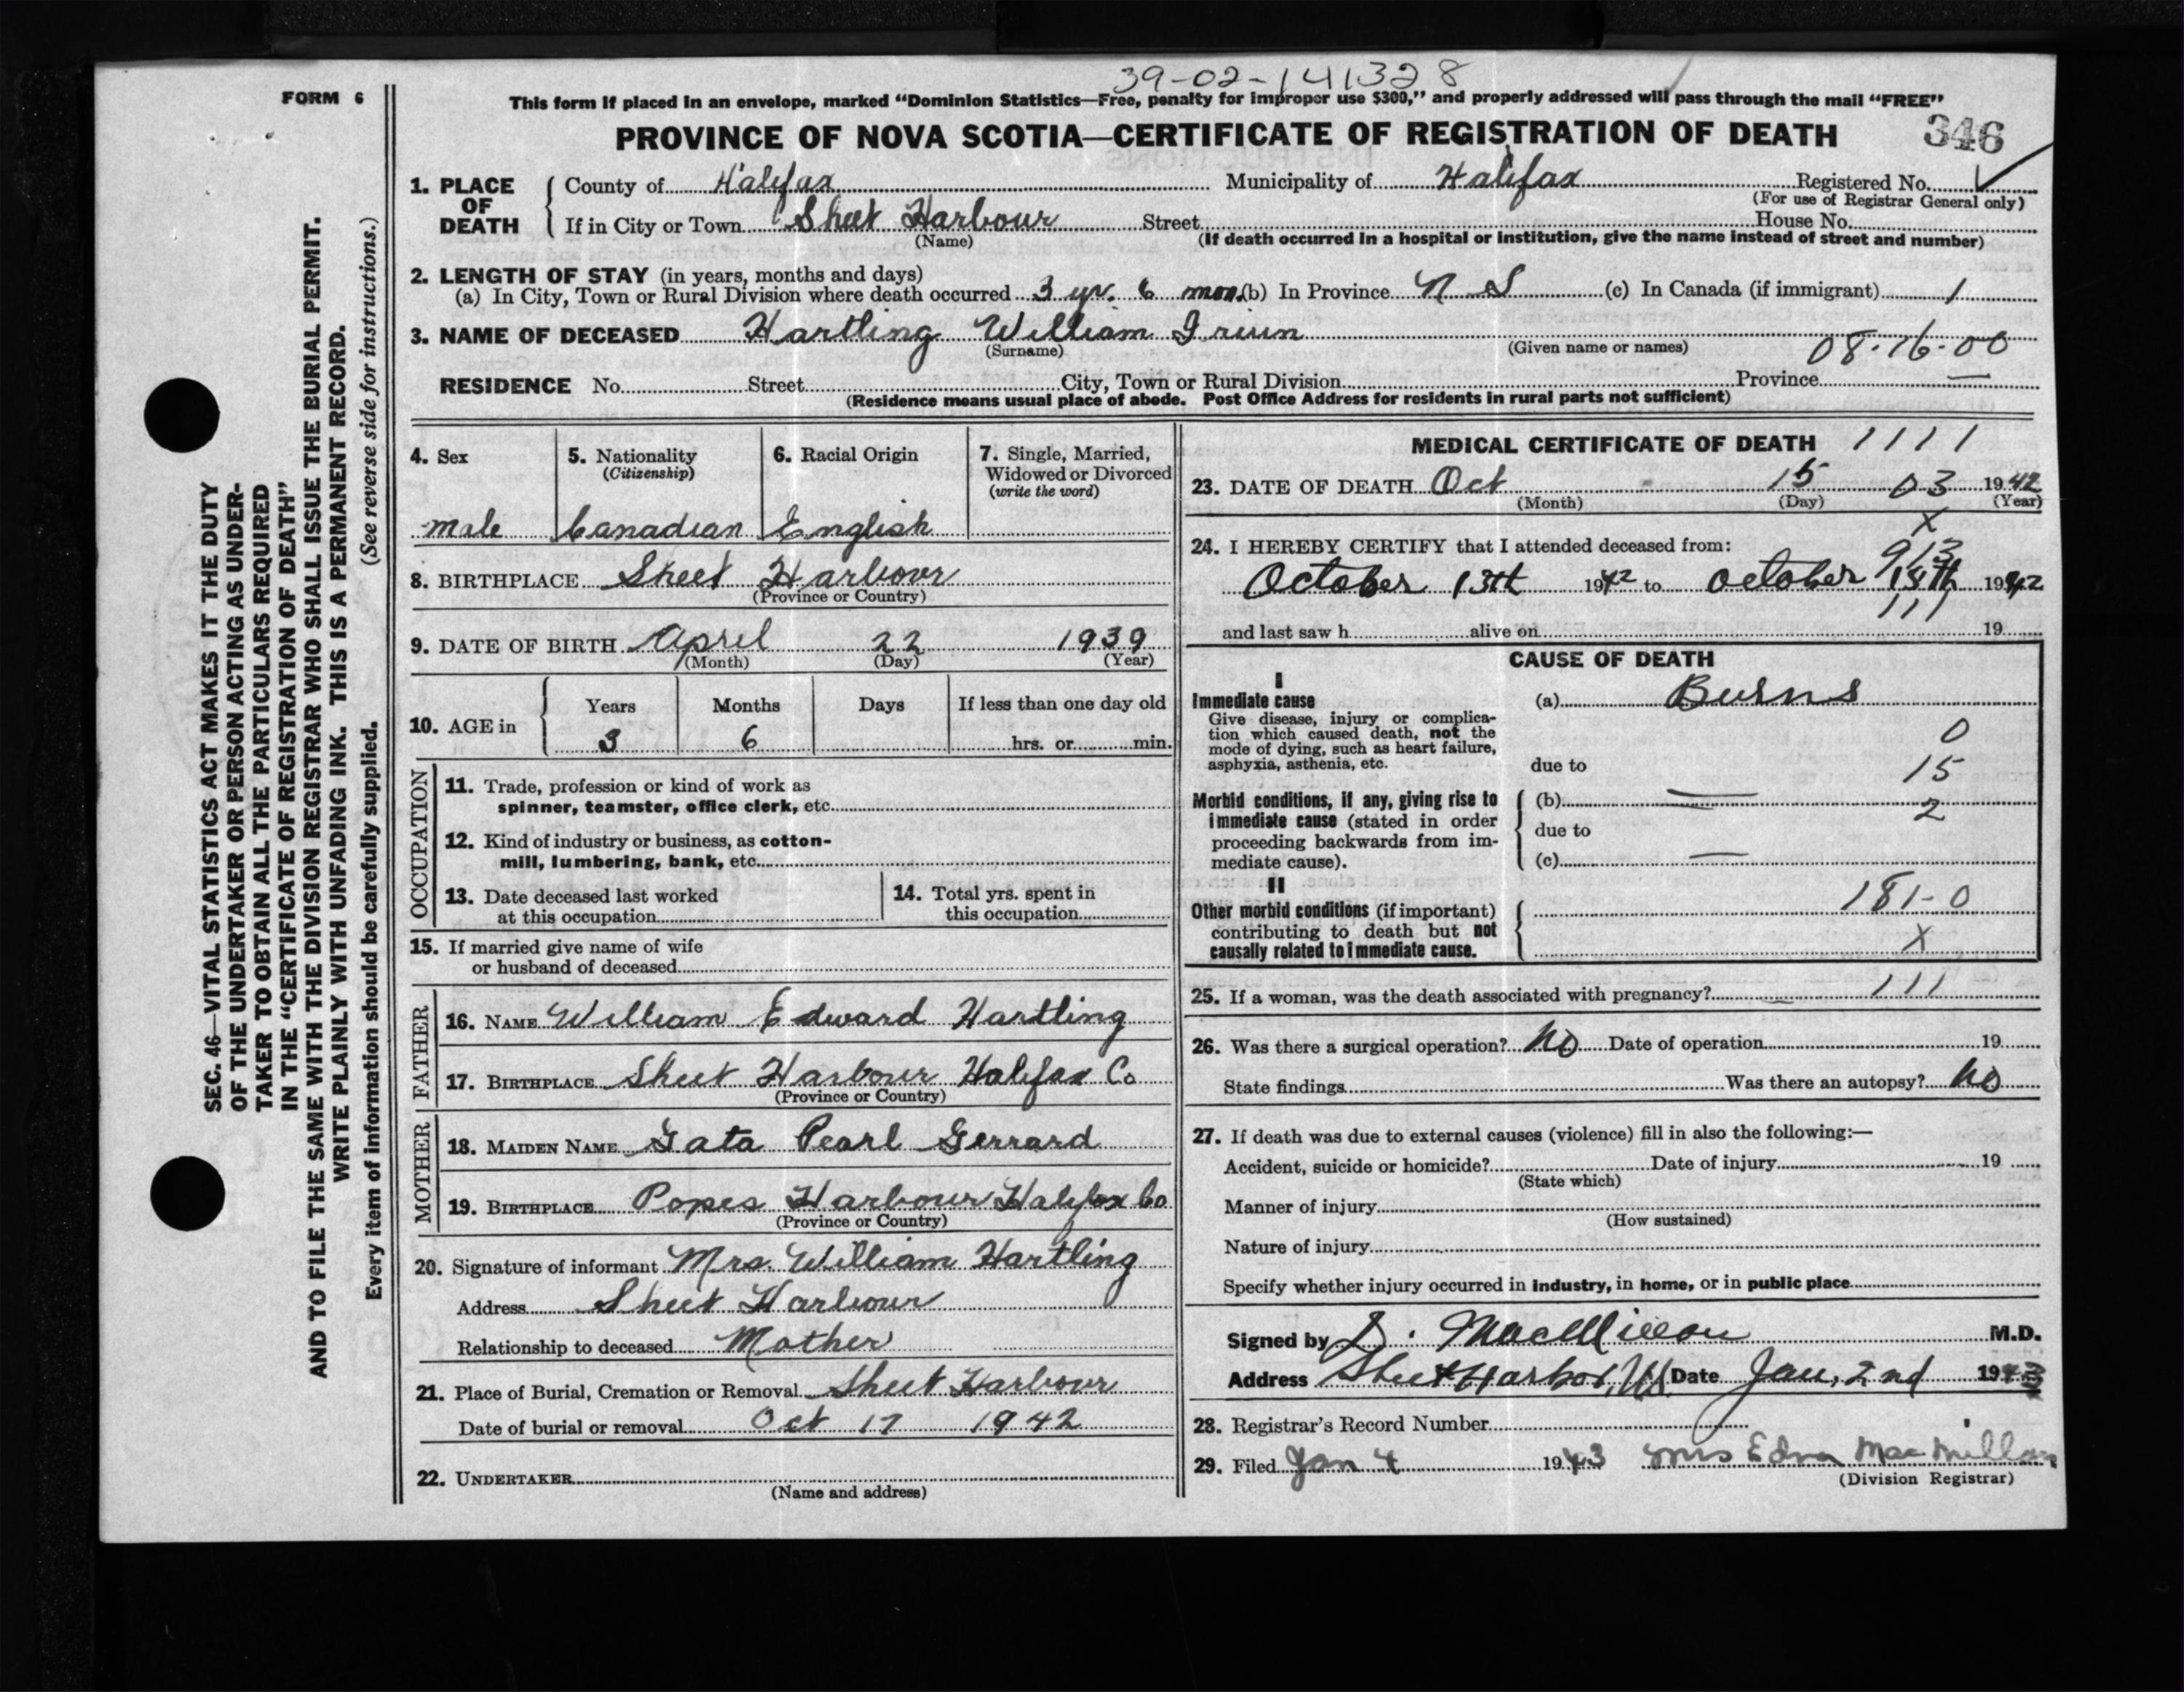 39-02-141328
FORM 6
This form if placed in an envelope, marked “Dominion Statistics—Free, penalty for improper use $300,” and properly addressed will pass through the mail “FREE”
PROVINCE OF NOVA SCOTIA—CERTIFICATE OF REGISTRATION OF DEATH
346
1. PLACE OF DEATH
County of Halifax Municipality of Halifax Registered No.
(For use of Registrar General only)
If in City or Town Sheet Harbour Street House No.
(Name) (If death occurred in a hospital or institution, give the name instead of street and number)
2. LENGTH OF STAY (in years, months and days)
(a) In City, Town or Rural Division where death occurred 3 yr. 6 mon. (b) In Province N S (c) In Canada (if immigrant) 1
3. NAME OF DECEASED Hartling William
(Surname) (Given name or names) 08-16-00
RESIDENCE No. Street City, Town or Rural Division Province —
(Residence means usual place of abode. Post Office Address for residents in rural parts not sufficient)
4. Sex
male
5. Nationality
(Citizenship)
Canadian
6. Racial Origin
English
7. Single, Married,
Widowed or Divorced
(write the word)
8. BIRTHPLACE Sheet Harbour
(Province or Country)
9. DATE OF BIRTH April 22 1939
(Month) (Day) (Year)
10. AGE in
Years Months Days If less than one day old
3 6 hrs. or min.
OCCUPATION
11. Trade, profession or kind of work as
spinner, teamster, office clerk, etc.
12. Kind of industry or business, as cotton-
mill, lumbering, bank, etc.
13. Date deceased last worked
at this occupation
14. Total yrs. spent in
this occupation
15. If married give name of wife
or husband of deceased
FATHER
16. NAME William Edward Hartling
17. BIRTHPLACE Sheet Harbour Halifax Co
(Province or Country)
MOTHER
18. MAIDEN NAME Gata Pearl Gerrard
19. BIRTHPLACE Popes Harbour Halifax Co
(Province or Country)
20. Signature of informant Mrs. William Hartling
Address Sheet Harbour
Relationship to deceased Mother
21. Place of Burial, Cremation or Removal Sheet Harbour
Date of burial or removal Oct 17 1942
22. UNDERTAKER
(Name and address)
MEDICAL CERTIFICATE OF DEATH 1111
23. DATE OF DEATH Oct 15 03 1942
(Month) (Day) (Year)
X
24. I HEREBY CERTIFY that I attended deceased from:
913
October 13th 1942 to October 1942
111
and last saw h alive on 19
CAUSE OF DEATH
I
Immediate cause
Give disease, injury or complica-
tion which caused death, not the
mode of dying, such as heart failure,
asphyxia, asthenia, etc.
(a) Burns
0
due to
15
Morbid conditions, if any, giving rise to
immediate cause (stated in order
proceeding backwards from im-
mediate cause).
(b) —
2
due to
(c) —
II
Other morbid conditions (if important)
contributing to death but not
causally related to immediate cause.
181-0
X
25. If a woman, was the death associated with pregnancy? 111
26. Was there a surgical operation? No Date of operation 19
State findings Was there an autopsy? No
27. If death was due to external causes (violence) fill in also the following:—
Accident, suicide or homicide? Date of injury 19
(State which)
Manner of injury
(How sustained)
Nature of injury
Specify whether injury occurred in industry, in home, or in public place
Signed by M.D.
Address Sheet Harbor, NS. Date Jan, 2nd 1943
28. Registrar's Record Number
29. Filed Jan 4 1943 Mrs Edna MacMillan
(Division Registrar)
SEC. 46—VITAL STATISTICS ACT MAKES IT THE DUTY
OF THE UNDERTAKER OR PERSON ACTING AS UNDER-
TAKER TO OBTAIN ALL THE PARTICULARS REQUIRED
IN THE “CERTIFICATE OF REGISTRATION OF DEATH”
AND TO FILE THE SAME WITH THE DIVISION REGISTRAR WHO SHALL ISSUE THE BURIAL PERMIT.
WRITE PLAINLY WITH UNFADING INK. THIS IS A PERMANENT RECORD.
Every item of information should be carefully supplied. (See reverse side for instructions.)